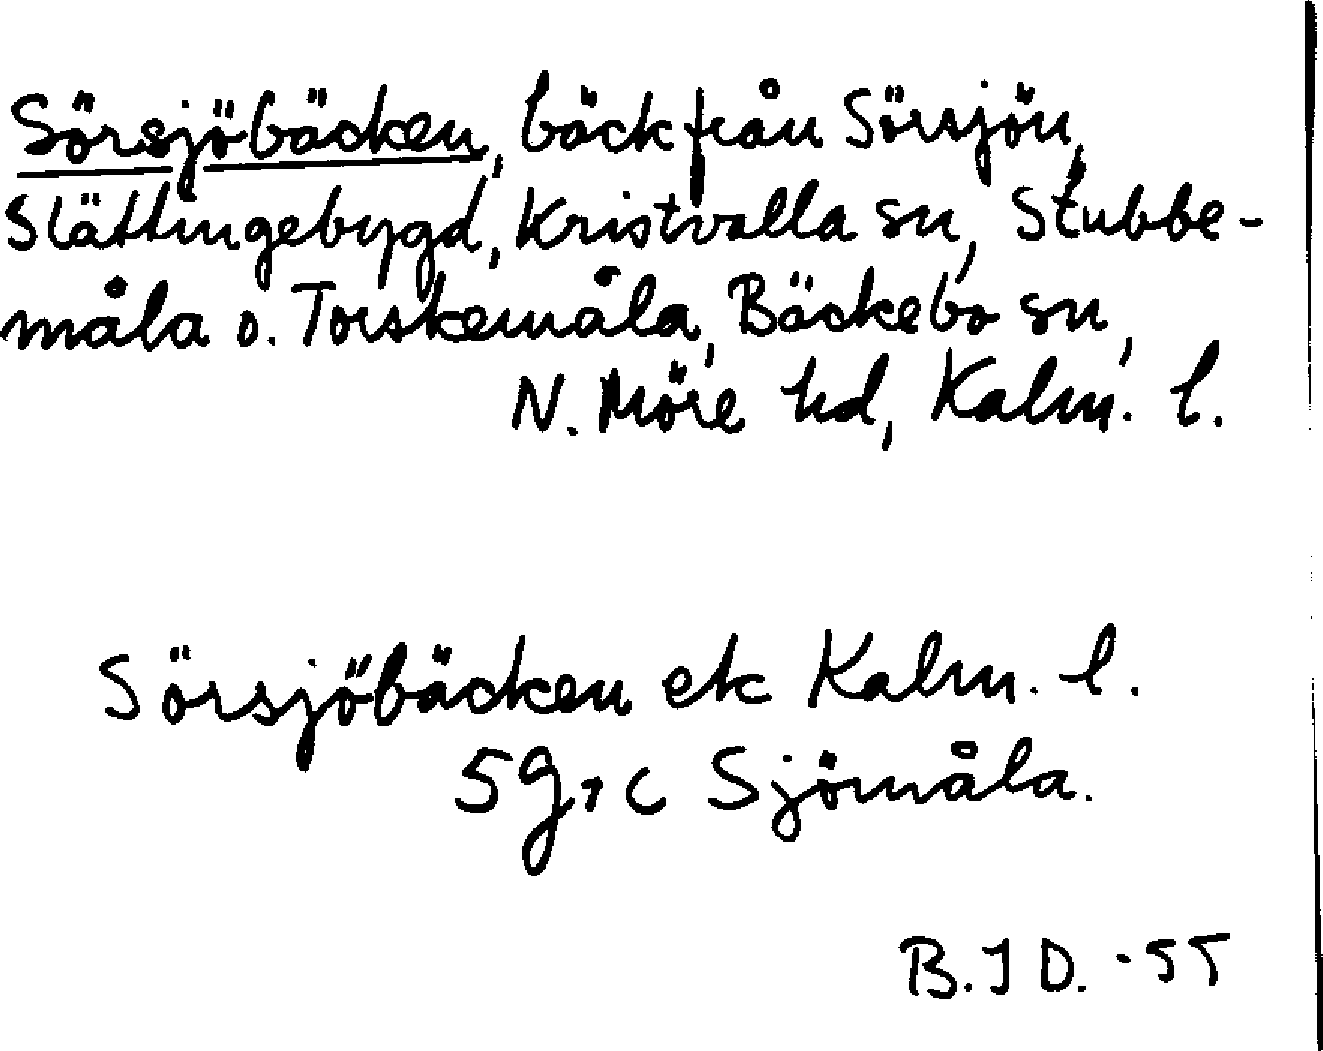 Sörsjöbäcken, bäck från Sörsjön,
Slättingebygd, Kristvalla sn, Stubbe-
måla o. Torskemåla, Bäckebo sn,
N. Möre hd, Kalm. l.
Sörsjöbäcken ek Kalm. l.
5g, c Sjömåla.
B.JD. -55